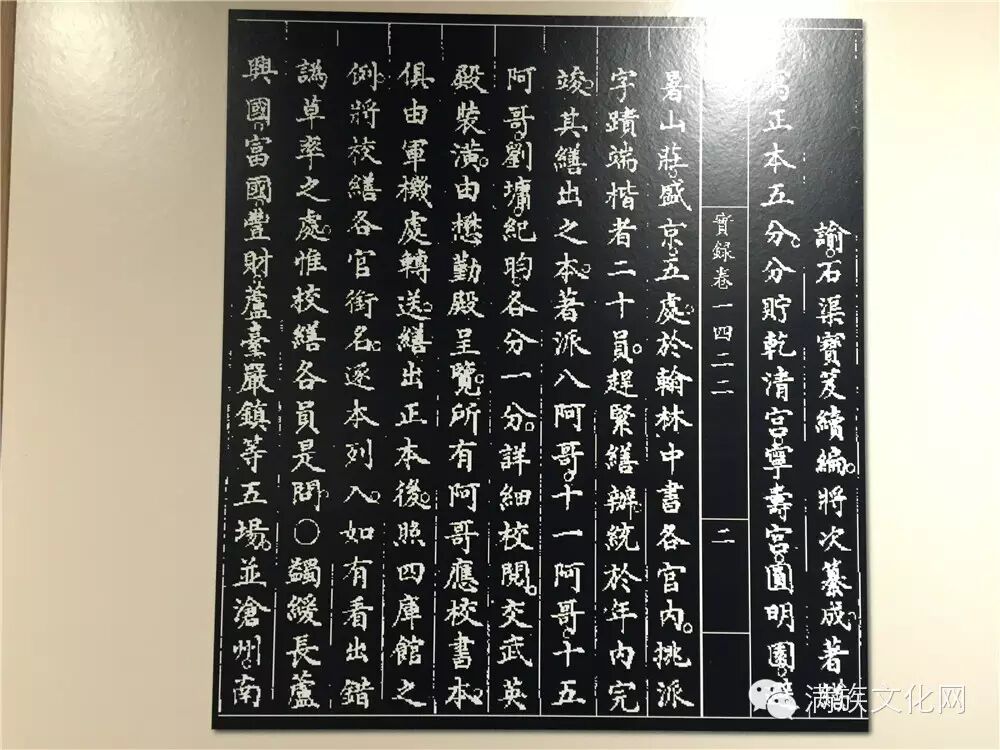 諭。石渠寶笈續編。將次纂成。著
正本五分。分貯乾清宮。寧壽宮。圓明園。
實錄卷一四二二 二
暑山莊。盛京。五處。於翰林中書各官內。挑派
字蹟端楷者二十員。趕緊繕辦。統於年內完
竣。其繕出之本。著派八阿哥。十一阿哥。十五
阿哥。劉墉。紀昀。各分一分。詳細校閱。交武英
殿裝潢。由懋勤殿呈覽。所有阿哥應校書本。
俱由軍機處轉送。繕出正本後。照四庫館之
例。將校繕各官銜名。逐本列入。如有看出錯
譌草率之處。惟校繕各員是問。○蠲緩長蘆
興國。富國。豐財。蘆臺。嚴鎮等五場。並滄州。南
满族文化网